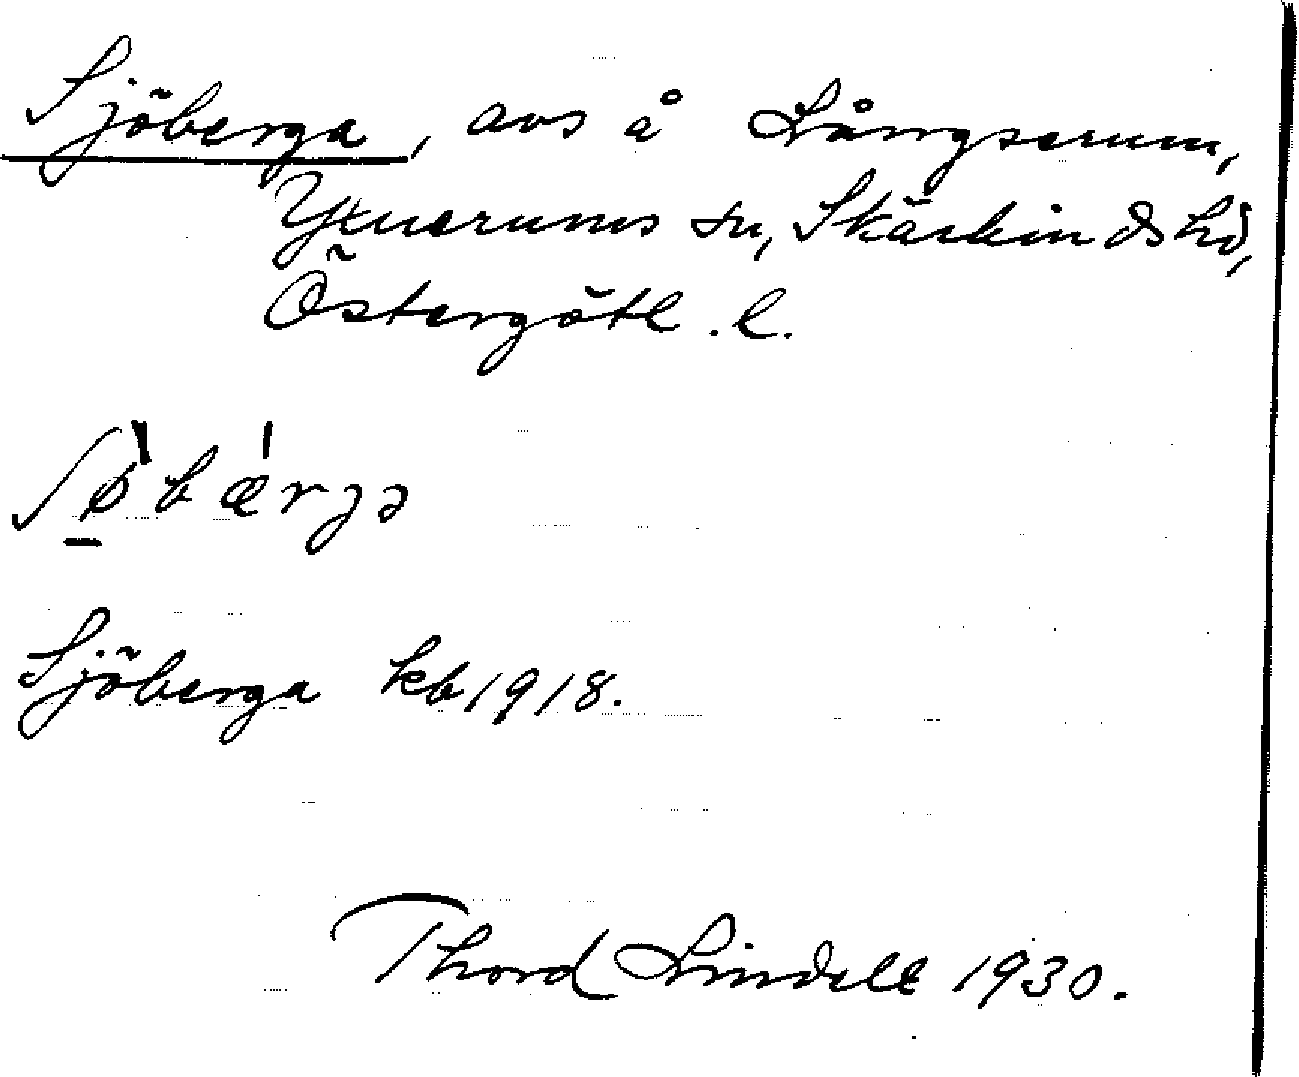 Sjöberga, avs å Långserum,
Yxnerums sn, Skärkinds hd,
Östergötl. l.
ʃø̀bǽrgə
Sjöberga kb 1918.
Thord Lindell 1930.